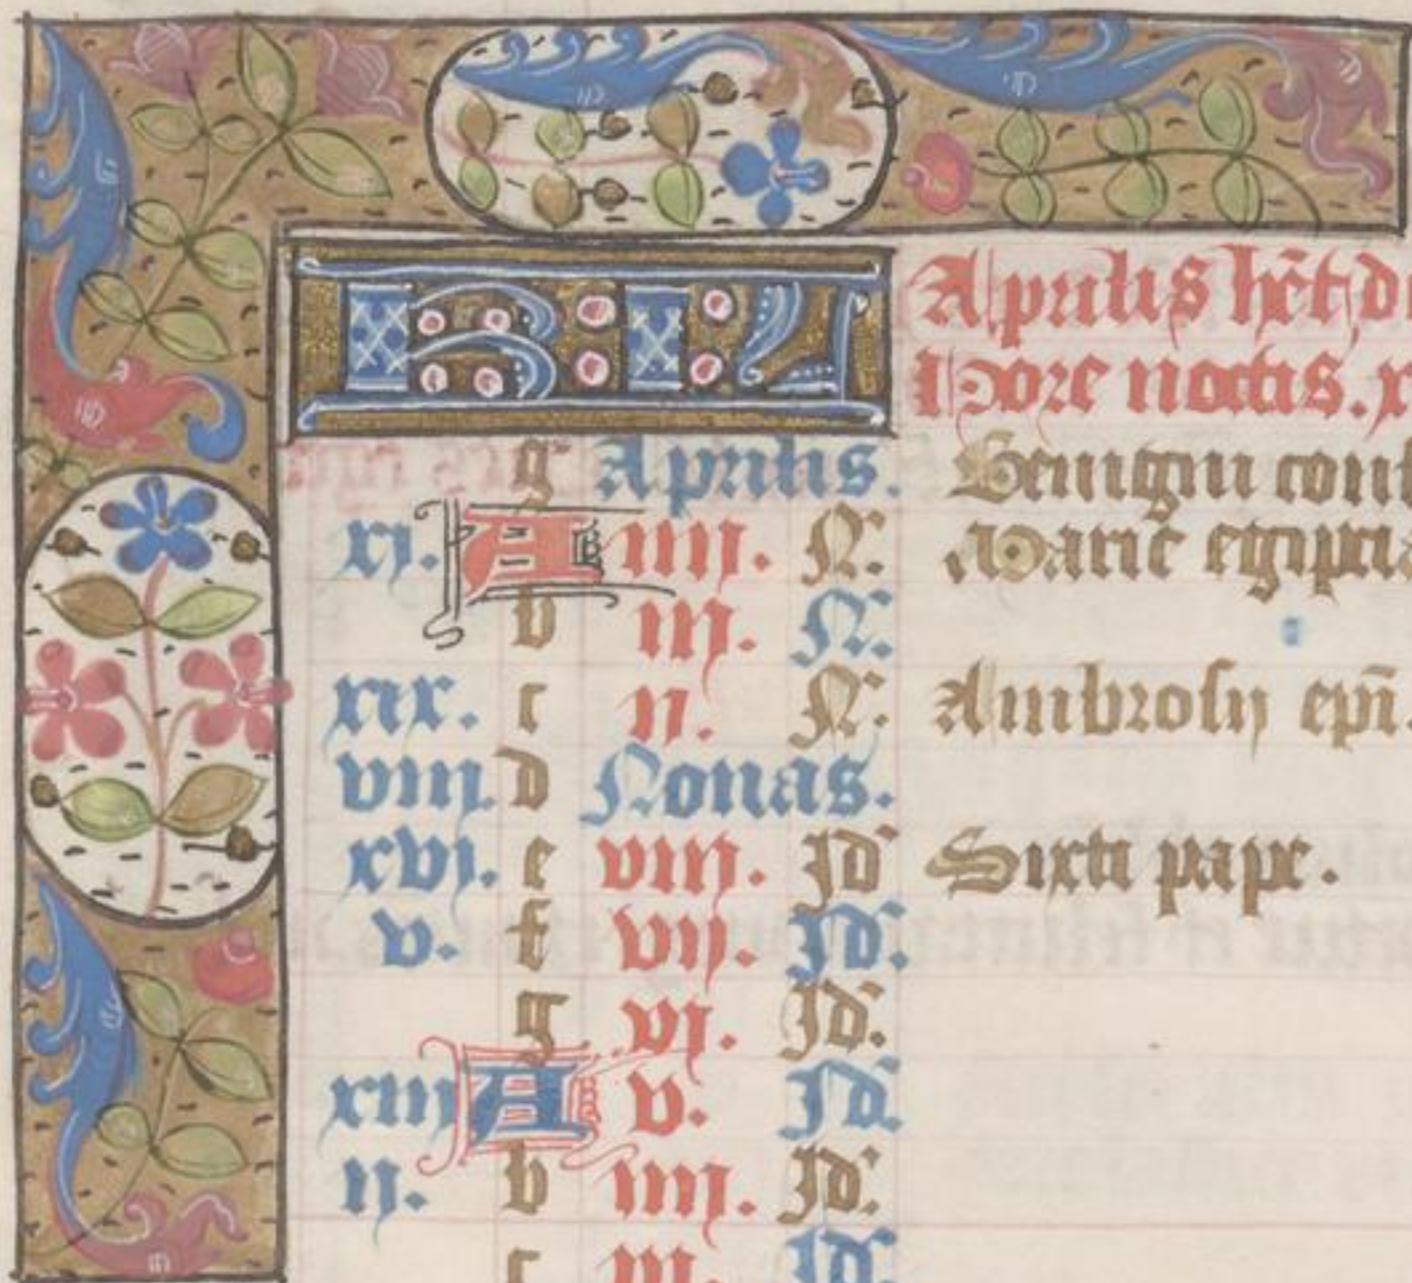 KL Aprilis hēt d
Hore noctis. x
g Aprilis. Benigni conf
xj. A iiij. N. Marie egiptia
b iij. N.
xix. c ij. N. Ambrosij epī.
viij. d Nonas.
xvj. e viij. Id Sixti pape.
v. f vij. Id.
g vj. Id.
xiij A v. Id.
ij. b iiij. Id.
c iij. Id.